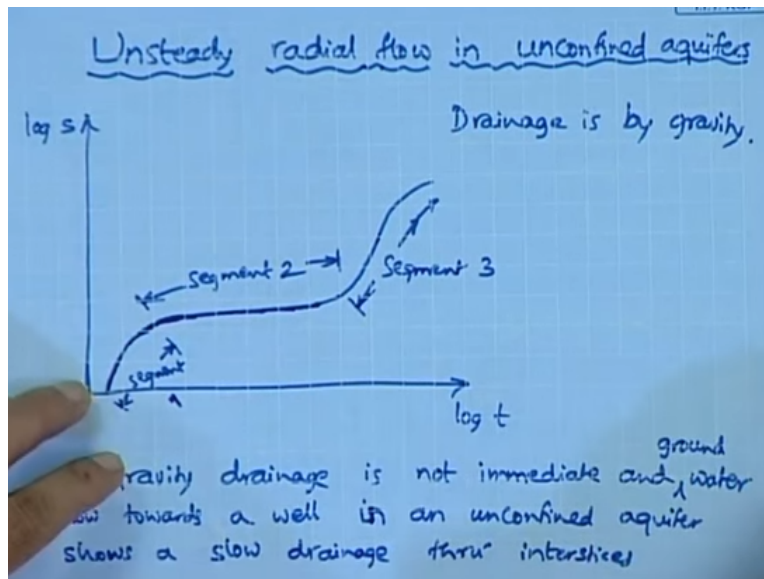 Unsteady radial flow in unconfined aquifers
Drainage is by gravity.
log s
segment 2
Segment 3
segment
1
log t
ground
gravity drainage is not immediate and ∧ water
towards a well in an unconfined aquifer
shows a slow drainage thru' interstices